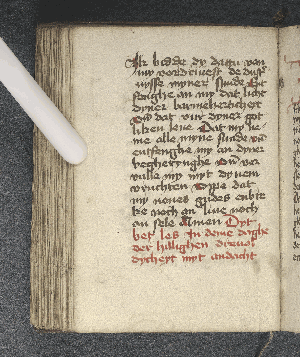 Ik bidde dy datu van
my vordrivest de duss
nysse myner sunde Vnt
fenghe an my dat licht
dyner barmeherticheyt
Vn dat vur dyner got
liken leue Dat my ne
me alle myne sunde vn
entfenghe my an dyner
begherynghe Du vor
vulle my myt dynem
vruchten Dyse dat
my nenes gudes enbre
ke noch an liue noch
an sele Amen Dyt
bet les In deme daghe
der hillighen drevol
dycheyt myt andacht